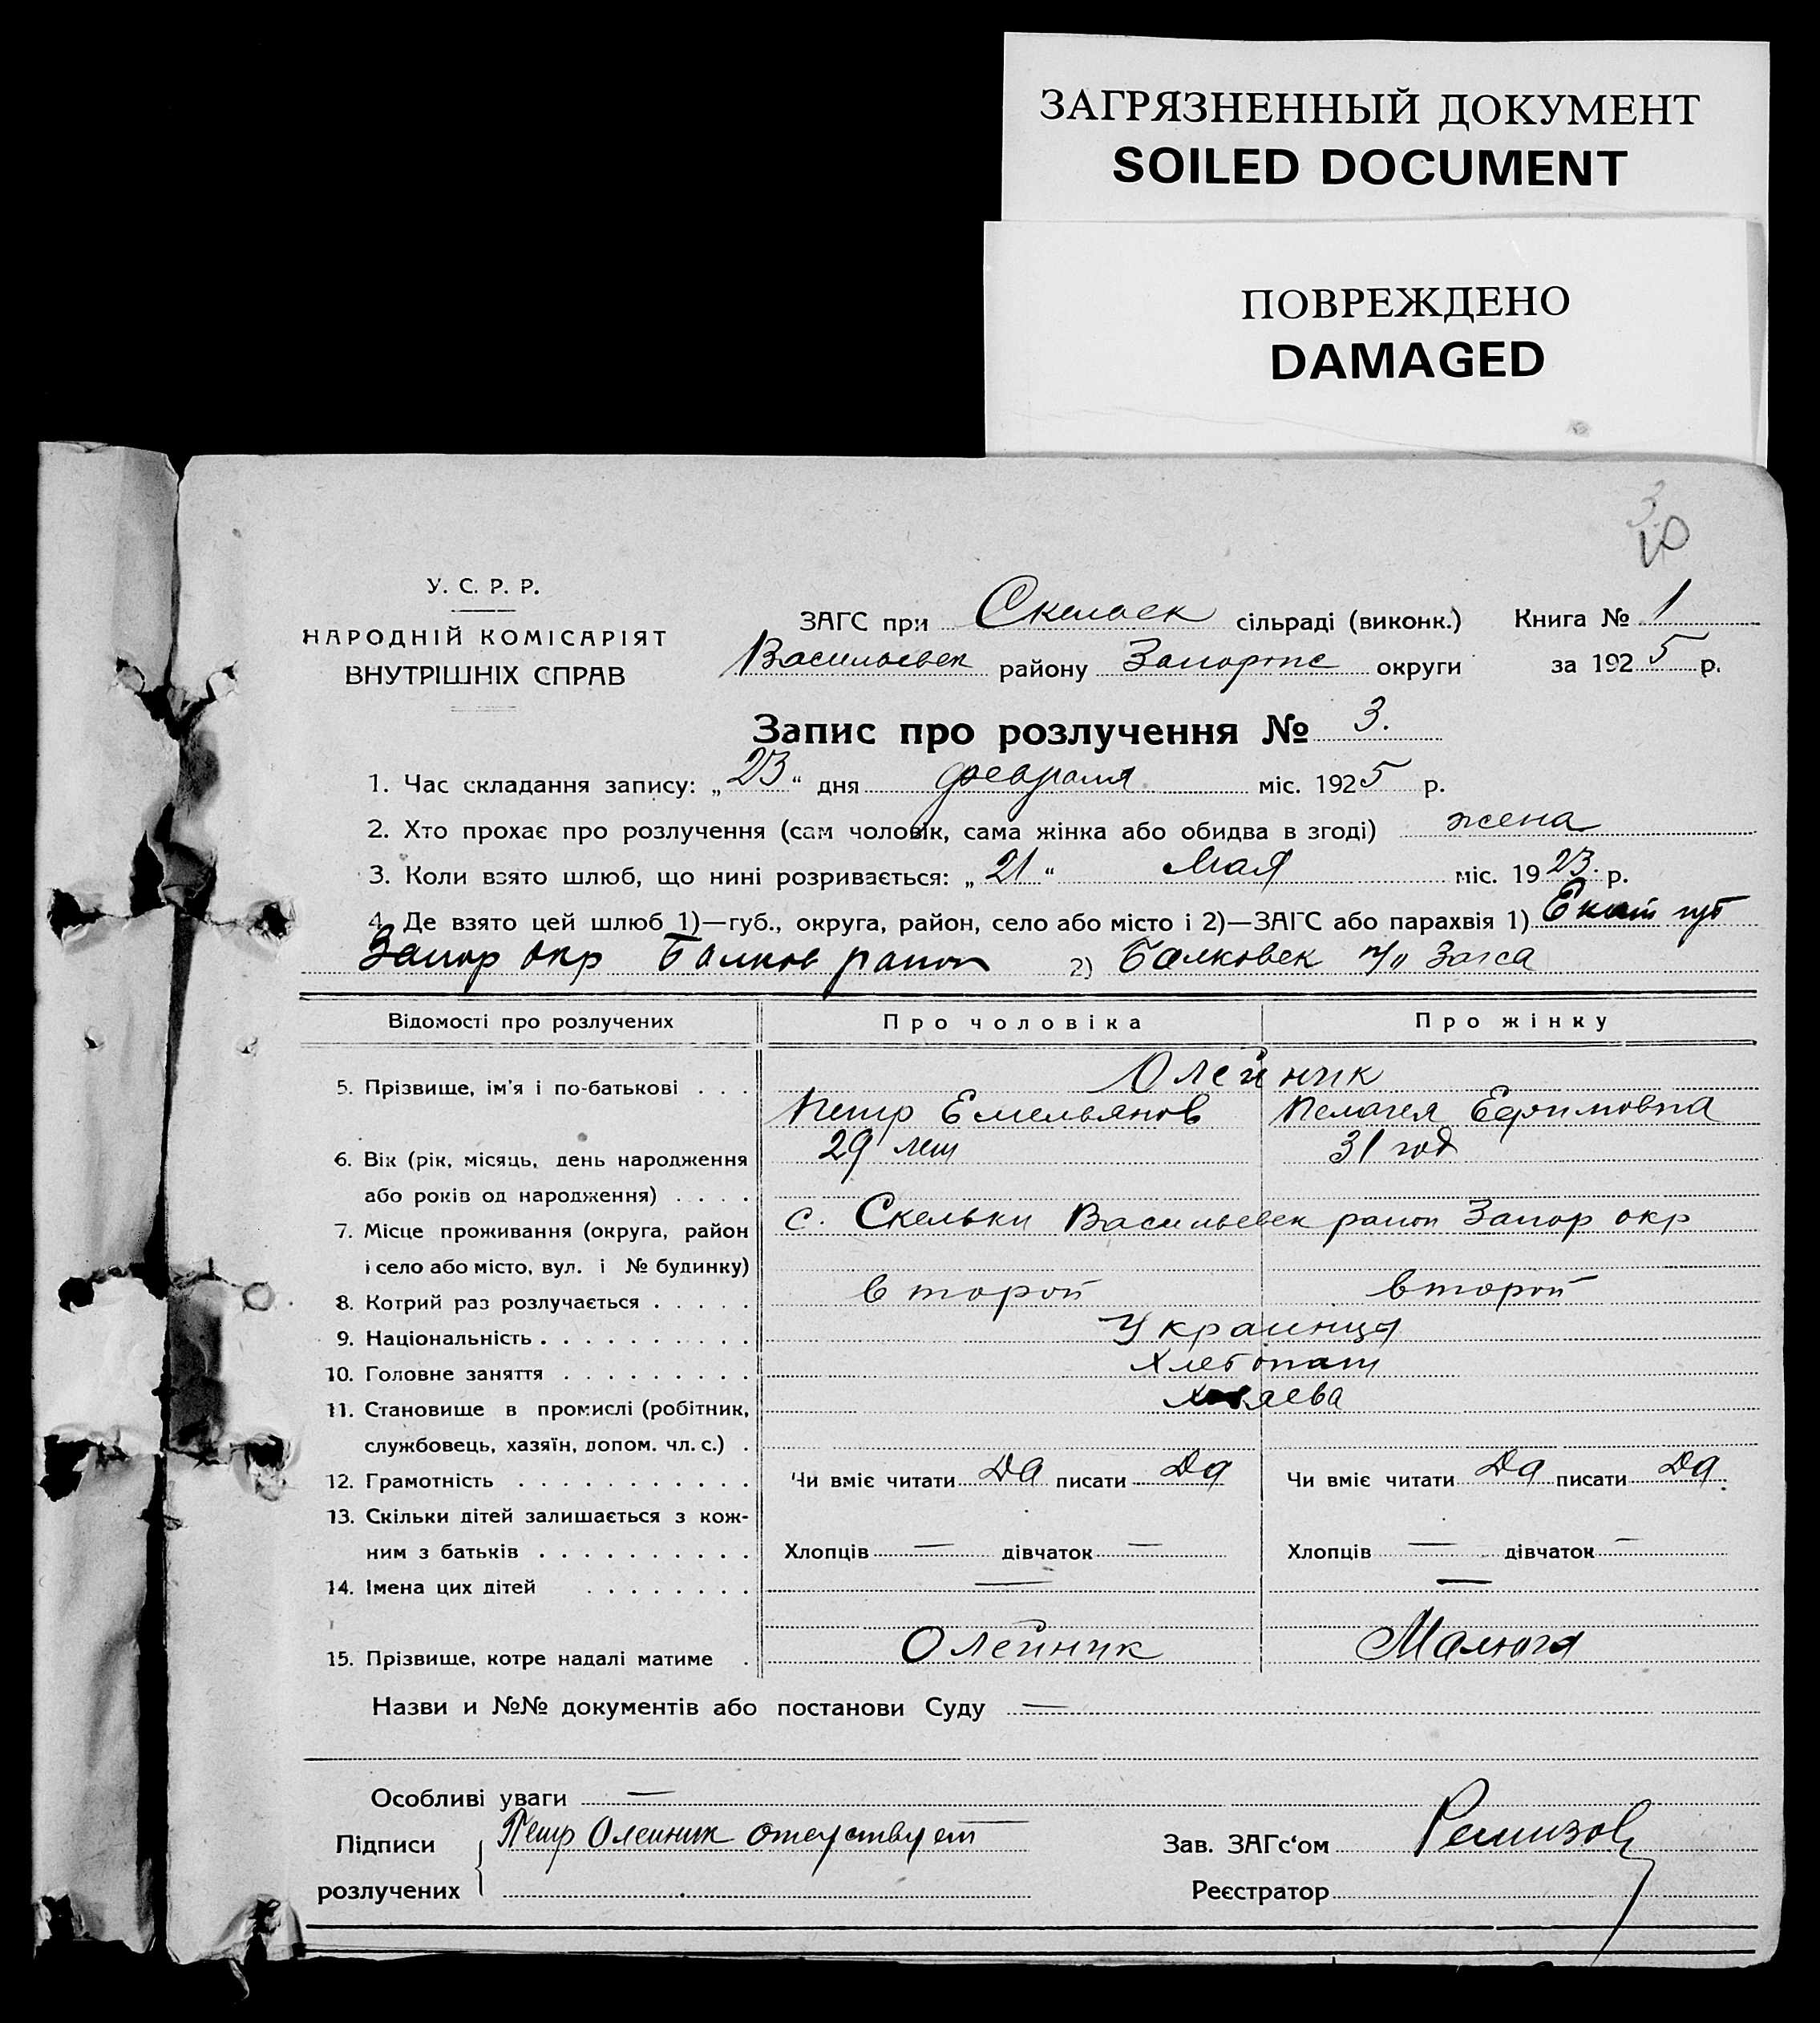 ЗАГРЯЗНЕННЫЙ ДОКУМЕНТ
SOILED DOCUMENT
ПОВРЕЖДЕНО
DAMAGED
3
10
У. С. Р. Р.
НАРОДНІЙ КОМІСАРІЯТ
ВНУТРІШНІХ СПРАВ
ЗАГС при Скельек сільраді (виконк.) Книга № 1
Васильевек району Запорож округи за 1925 р.
Запис про розлучення № 3.
1. Час складання запису: „23“ дня февраля міс. 1925 р.
2. Хто прохає про розлучення (сам чоловік, сама жінка або обидва в згоді) жена
3. Коли взято шлюб, що нині розривається: „21“ Мая міс. 1923 р.
4. Де взято цей шлюб 1)—губ., округа, район, село або місто і 2)—ЗАГС або парахвія 1) Екат губ
Запор окр Балков район 2) Балковек п/о Загса
Відомості про розлучених Про чоловіка Про жінку
5. Прізвище, ім'я і по-батькові . . . Олейник
Петр Емельянов Пелагея Ефимовна
6. Вік (рік, місяць, день народження 29 лет 31 год
або років од народження) . . . .
7. Місце проживання (округа, район с. Скельки Васильевек район Запор окр
і село або місто, вул. і № будинку)
8. Котрий раз розлучається . . . . . второй второй
9. Національність . . . . . . . . . . Украинця
10. Головне заняття . . . . . . . . . Хлебопаш
11. Становище в промислі (робітник,
службовець, хазяїн, допом. чл. с.) .
12. Грамотність . . . . . . . . . . . Чи вміє читати Да писати Да Чи вміє читати Да писати Да
13. Скільки дітей залишається з кож-
ним з батьків . . . . . . . . . . Хлопців — дівчаток — Хлопців — дівчаток —
14. Імена цих дітей . . . . . . . . — —
15. Прізвище, котре надалі матиме . Олейник Малюга
Назви и №№ документів або постанови Суду —
Особливі уваги —
Підписи Петр Олейник отсуствует Зав. ЗАГс‘ом Ремизов
розлучених Реєстратор